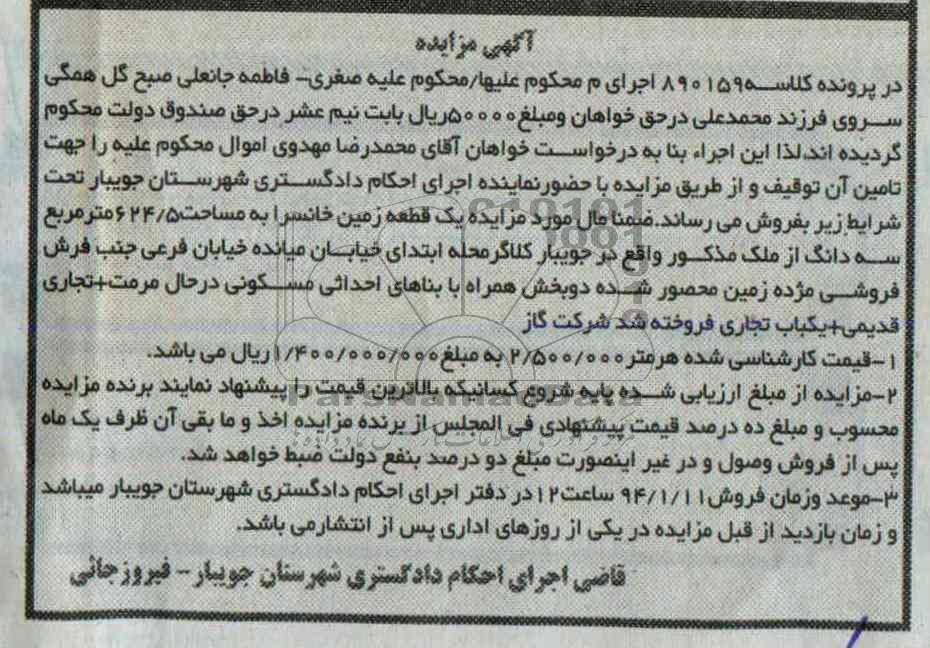 آگهی مزایده
در پرونده کلاسه۸۹۰۱۵۹ اجرای م محکوم علیها/محکوم علیه صغری- فاطمه جانعلی صبح گل همگی
سروی فرزند محمدعلی درحق خواهان ومبلغ۵۰۰۰۰ریال بابت نیم عشر درحق صندوق دولت محکوم
گردیده اند،لذا این اجراء بنا به درخواست خواهان آقای محمدرضا مهدوی اموال محکوم علیه را جهت
تامین آن توقیف و از طریق مزایده با حضورنماینده اجرای احکام دادگستری شهرستان جویبار تحت
شرایط زیر بفروش می رساند.ضمنا مال مورد مزایده یک قطعه زمین خانسرا به مساحت۶۲۴/۵مترمربع
سه دانگ از ملک مذکور واقع در جویبار کلاگرمحله ابتدای خیابان میانده خیابان فرعی جنب فرش
فروشی مژده زمین محصور شده دوبخش همراه با بناهای احداثی مسکونی درحال مرمت+تجاری
قدیمی+یکباب تجاری فروخته شد شرکت گاز
۱-قیمت کارشناسی شده هرمتر ۲/۵۰۰/۰۰۰ به مبلغ ۱/۴۰۰/۰۰۰/۰۰۰ریال می باشد.
۲-مزایده از مبلغ ارزیابی شده پایه شروع کسانیکه بالاترین قیمت را پیشنهاد نمایند برنده مزایده
محسوب و مبلغ ده درصد قیمت پیشنهادی فی المجلس از برنده مزایده اخذ و ما بقی آن ظرف یک ماه
پس از فروش وصول و در غیر اینصورت مبلغ دو درصد بنفع دولت ضبط خواهد شد.
۳-موعد وزمان فروش۹۴/۱/۱۱ ساعت۱۲در دفتر اجرای احکام دادگستری شهرستان جویبار میباشد
و زمان بازدید از قبل مزایده در یکی از روزهای اداری پس از انتشارمی باشد.
قاضی اجرای احکام دادگستری شهرستان جویبار - فیروزجائی